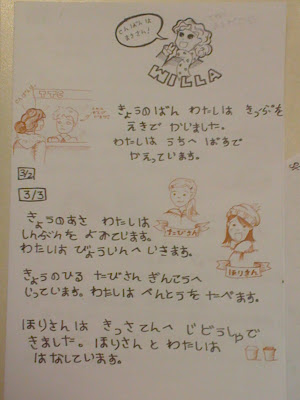 こんばんは
WILLA
きょうのばん わたしは きっぷを
えきで かいました。
わたしは うちへ ばすで
かえっています。
3/2
3/3
きょうのあさ わたしは
しんぶんを よみています。
わたしは びょういんへ いきます。
たびさん
ほりさん
きょうのひる たびさん ぎんこうへ
いっています。わたしは べんとうを たべます。
ほりさんは きっさてんへ じどうしゃで
きました。ほりさんと わたしは
はなしています。